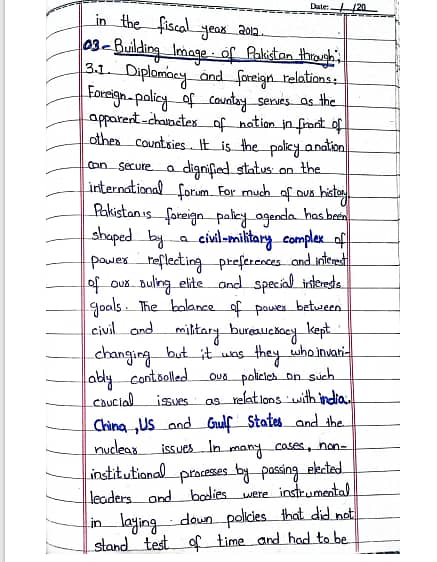 Date: / /20
in the fiscal year 2012.
03-Building Image of Pakistan through;
3.1. Diplomacy and foreign relations:
Foreign-policy of country serves as the
apparent-character of nation in front of
other countries. It is the policy a nation
can secure a dignified status on the
international forum. For much of our history
Pakistan's foreign policy agenda has been
shaped by a civil-military complex of
power reflecting preferences and interest
of our ruling elite and special interests
goals. The balance of power between
civil and military bureaucracy kept
changing but it was they who invari-
ably controlled our policies on such
crucial issues as relations with india.
China, US and Gulf States and the
nuclear issues. In many cases, non-
institutional processes by passing elected
leaders and bodies were instrumental
in laying down policies that did not
stand test of time and had to be